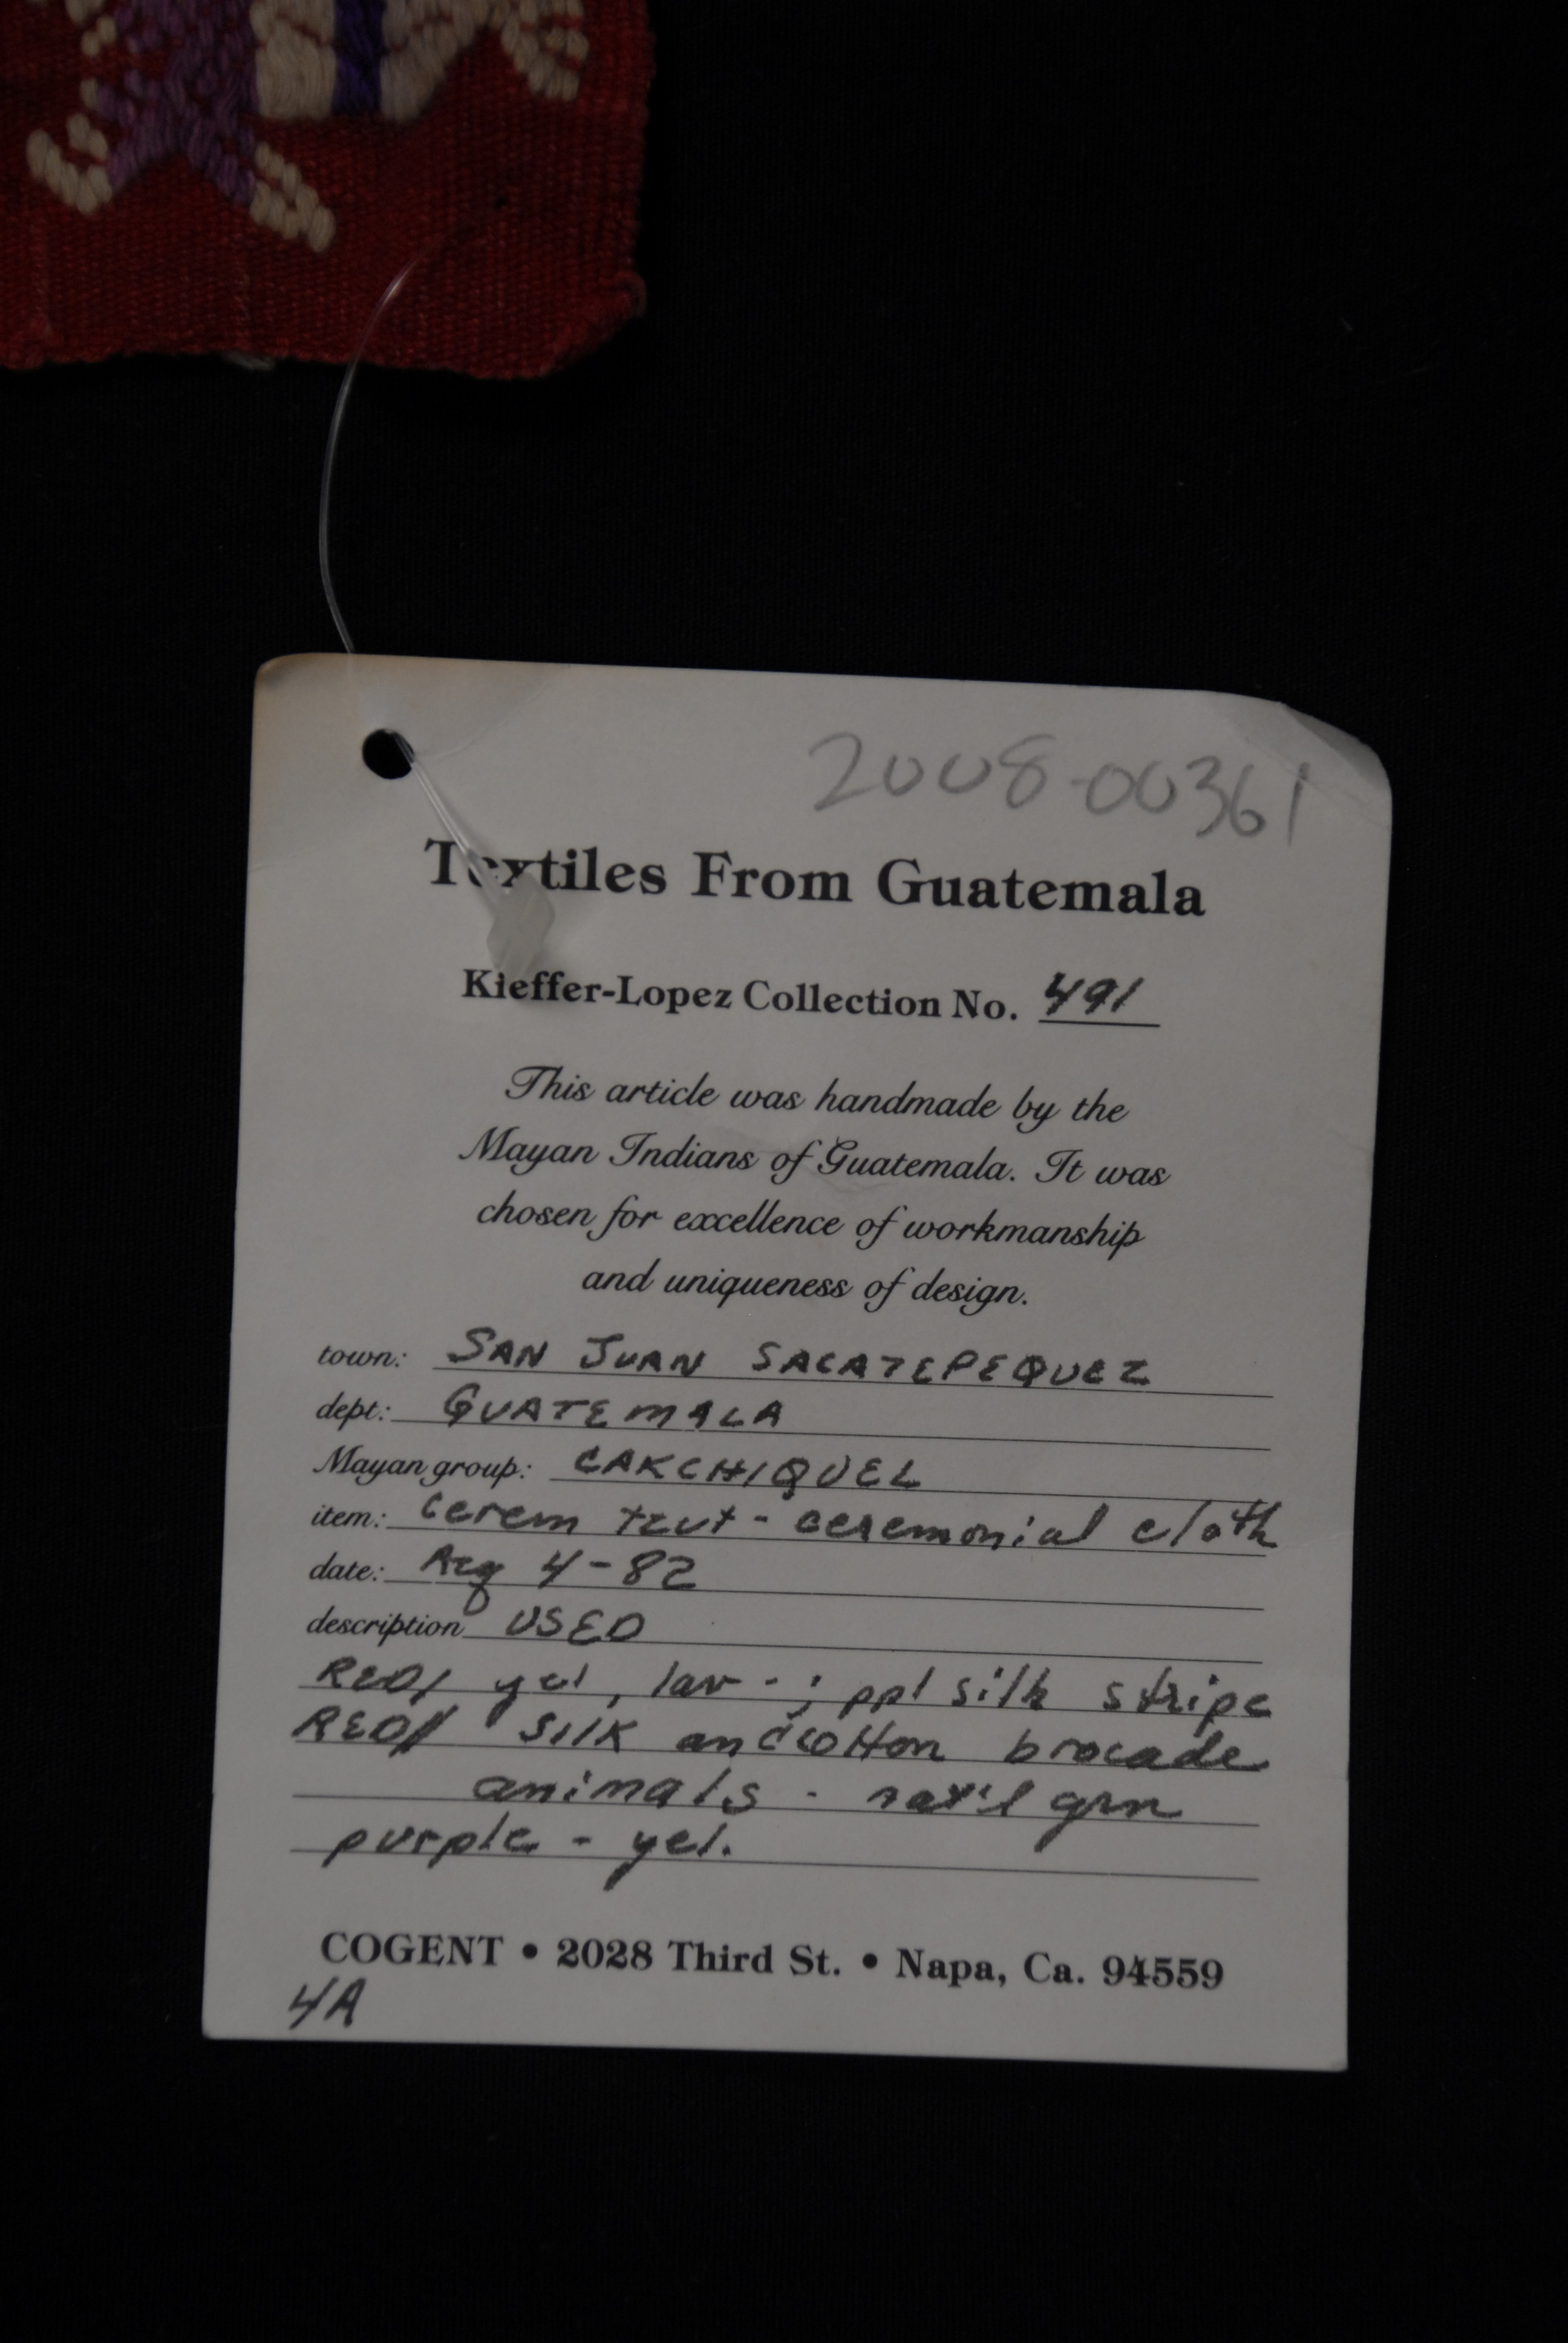 2008-00361
Textiles From Guatemala
Kieffer-Lopez Collection No. 491
This article was handmade by the
Mayan Indians of Guatemala. It was
chosen for excellence of workmanship
and uniqueness of design.
town: SAN JUAN SACATEPEQUEZ
dept: GUATEMALA
Mayan group: CAKCHIQUEL
item: cerem tzut - ceremonial cloth
date: Acq 4-82
description USED
RED/ yel, lav - ; ppl silk stripe
RED// silk and cotton brocade
animals - nat'l grn
purple - yel.
COGENT • 2028 Third St. • Napa, Ca. 94559
4A